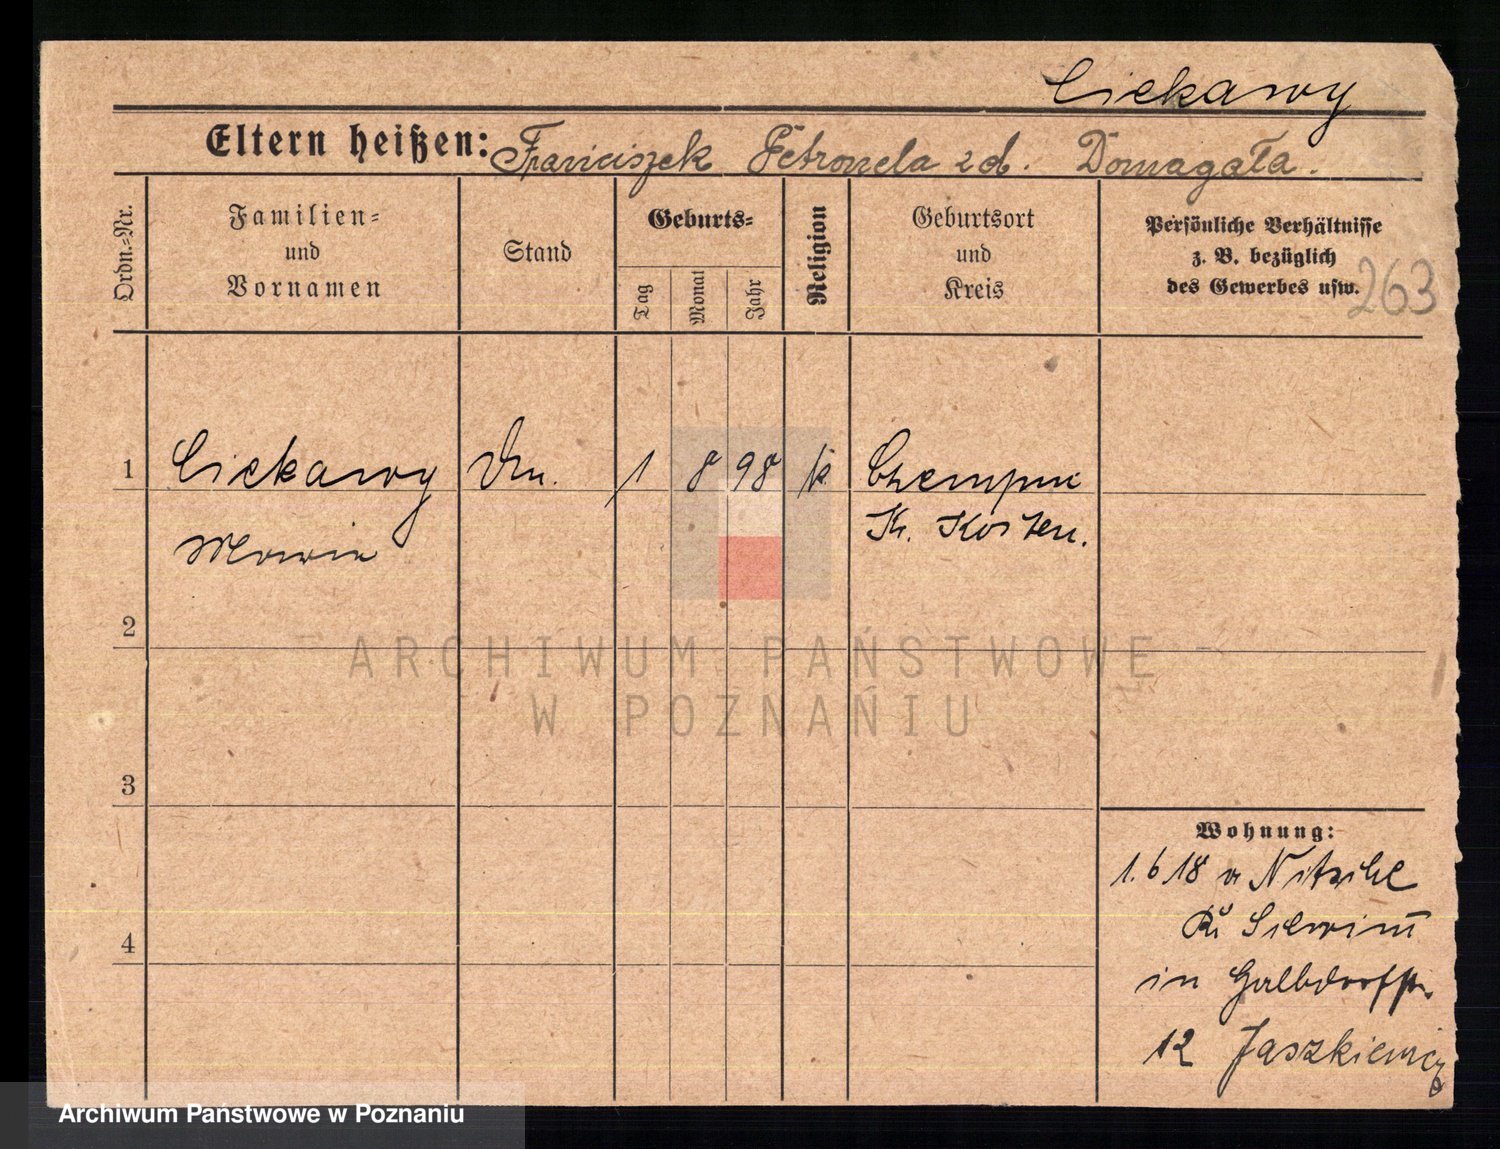 Ciekawy
Eltern heißen: Franciszek Petronela zd. Domagała.
Ordn.-Nr.
Familien-
und
Vornamen
Stand
Geburts-
Tag
Monat
Jahr
Religion
Geburtsort
und
Kreis
Persönliche Verhältnisse
z. B. bezüglich
des Gewerbes usw.
263
1 Ciekawy 1 8 98 k Czempin
Kr. Kosten.
2
3
4
Wohnung:
1.6 18 v
Kr Schrimm
in
12 Jaszkiewicz
ARCHIWUM PAŃSTWOWE
W POZNANIU
Archiwum Państwowe w Poznaniu